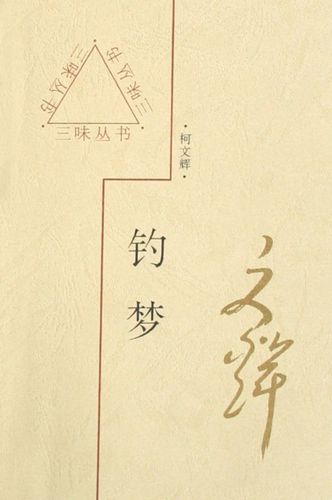 三味丛书
三味丛书
三味丛书
·柯文辉·
钓梦
文辉